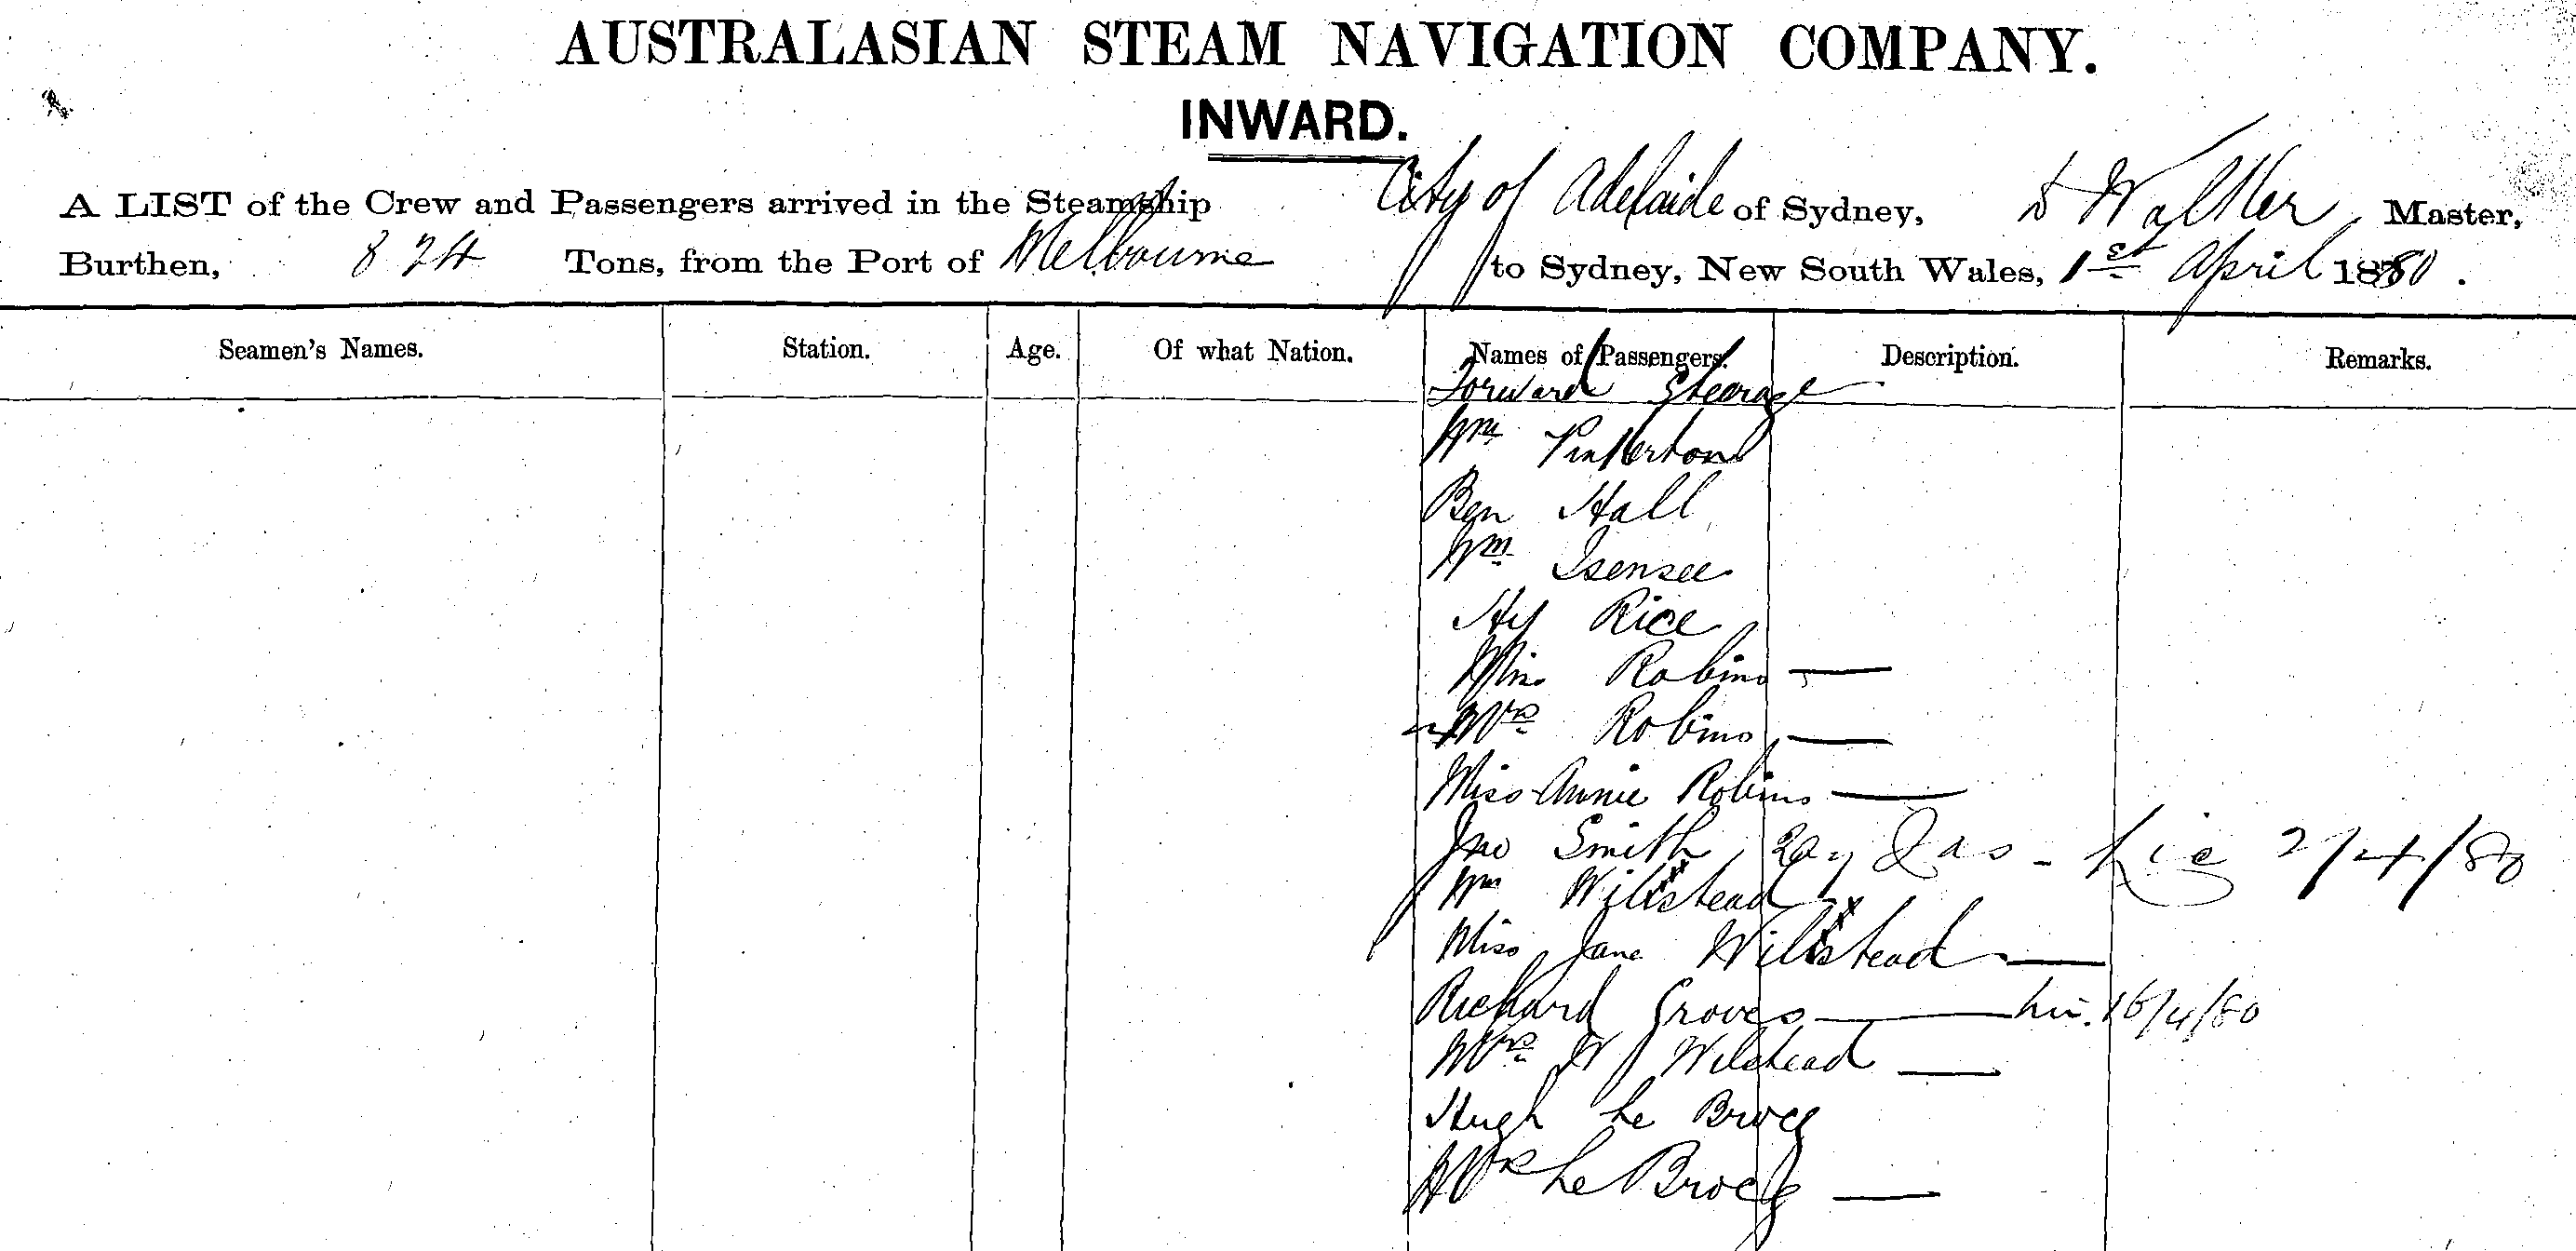 AUSTRALASIAN STEAM NAVIGATION COMPANY.
INWARD.
A LIST of the Crew and Passengers arrived in the Steamship City of Adelaide of Sydney, D Walker, Master,
Burthen, 824 Tons, from the Port of Melbourne to Sydney, New South Wales, 1st April 1880.
Seamen's Names. Station. Age. Of what Nation. Names of Passengers. Description. Remarks.
Forward Steerage
Wm Pinkerton
Ben Hall
Wm Isensee
Hy Rice
Robins
Mrs Robins
Miss Annie Robins
Jno Smith 2/4/80
Wm Wiltstead
Miss Jane Wiltstead
Richard Groves 16/4/80
Mrs W Wilstead
Hugh Le Brocq
Mrs Le Brocq